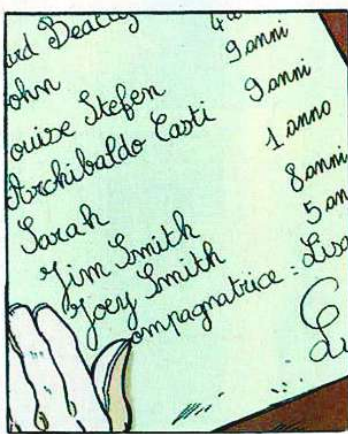 ard Beac
ohn 9 anni
ouise Stefen 9 anni
Archibaldo Casti 1 anno
Sarah 8 anni
Jim Smith 5 an
Joey Smith
ompagnatrice: Lisa